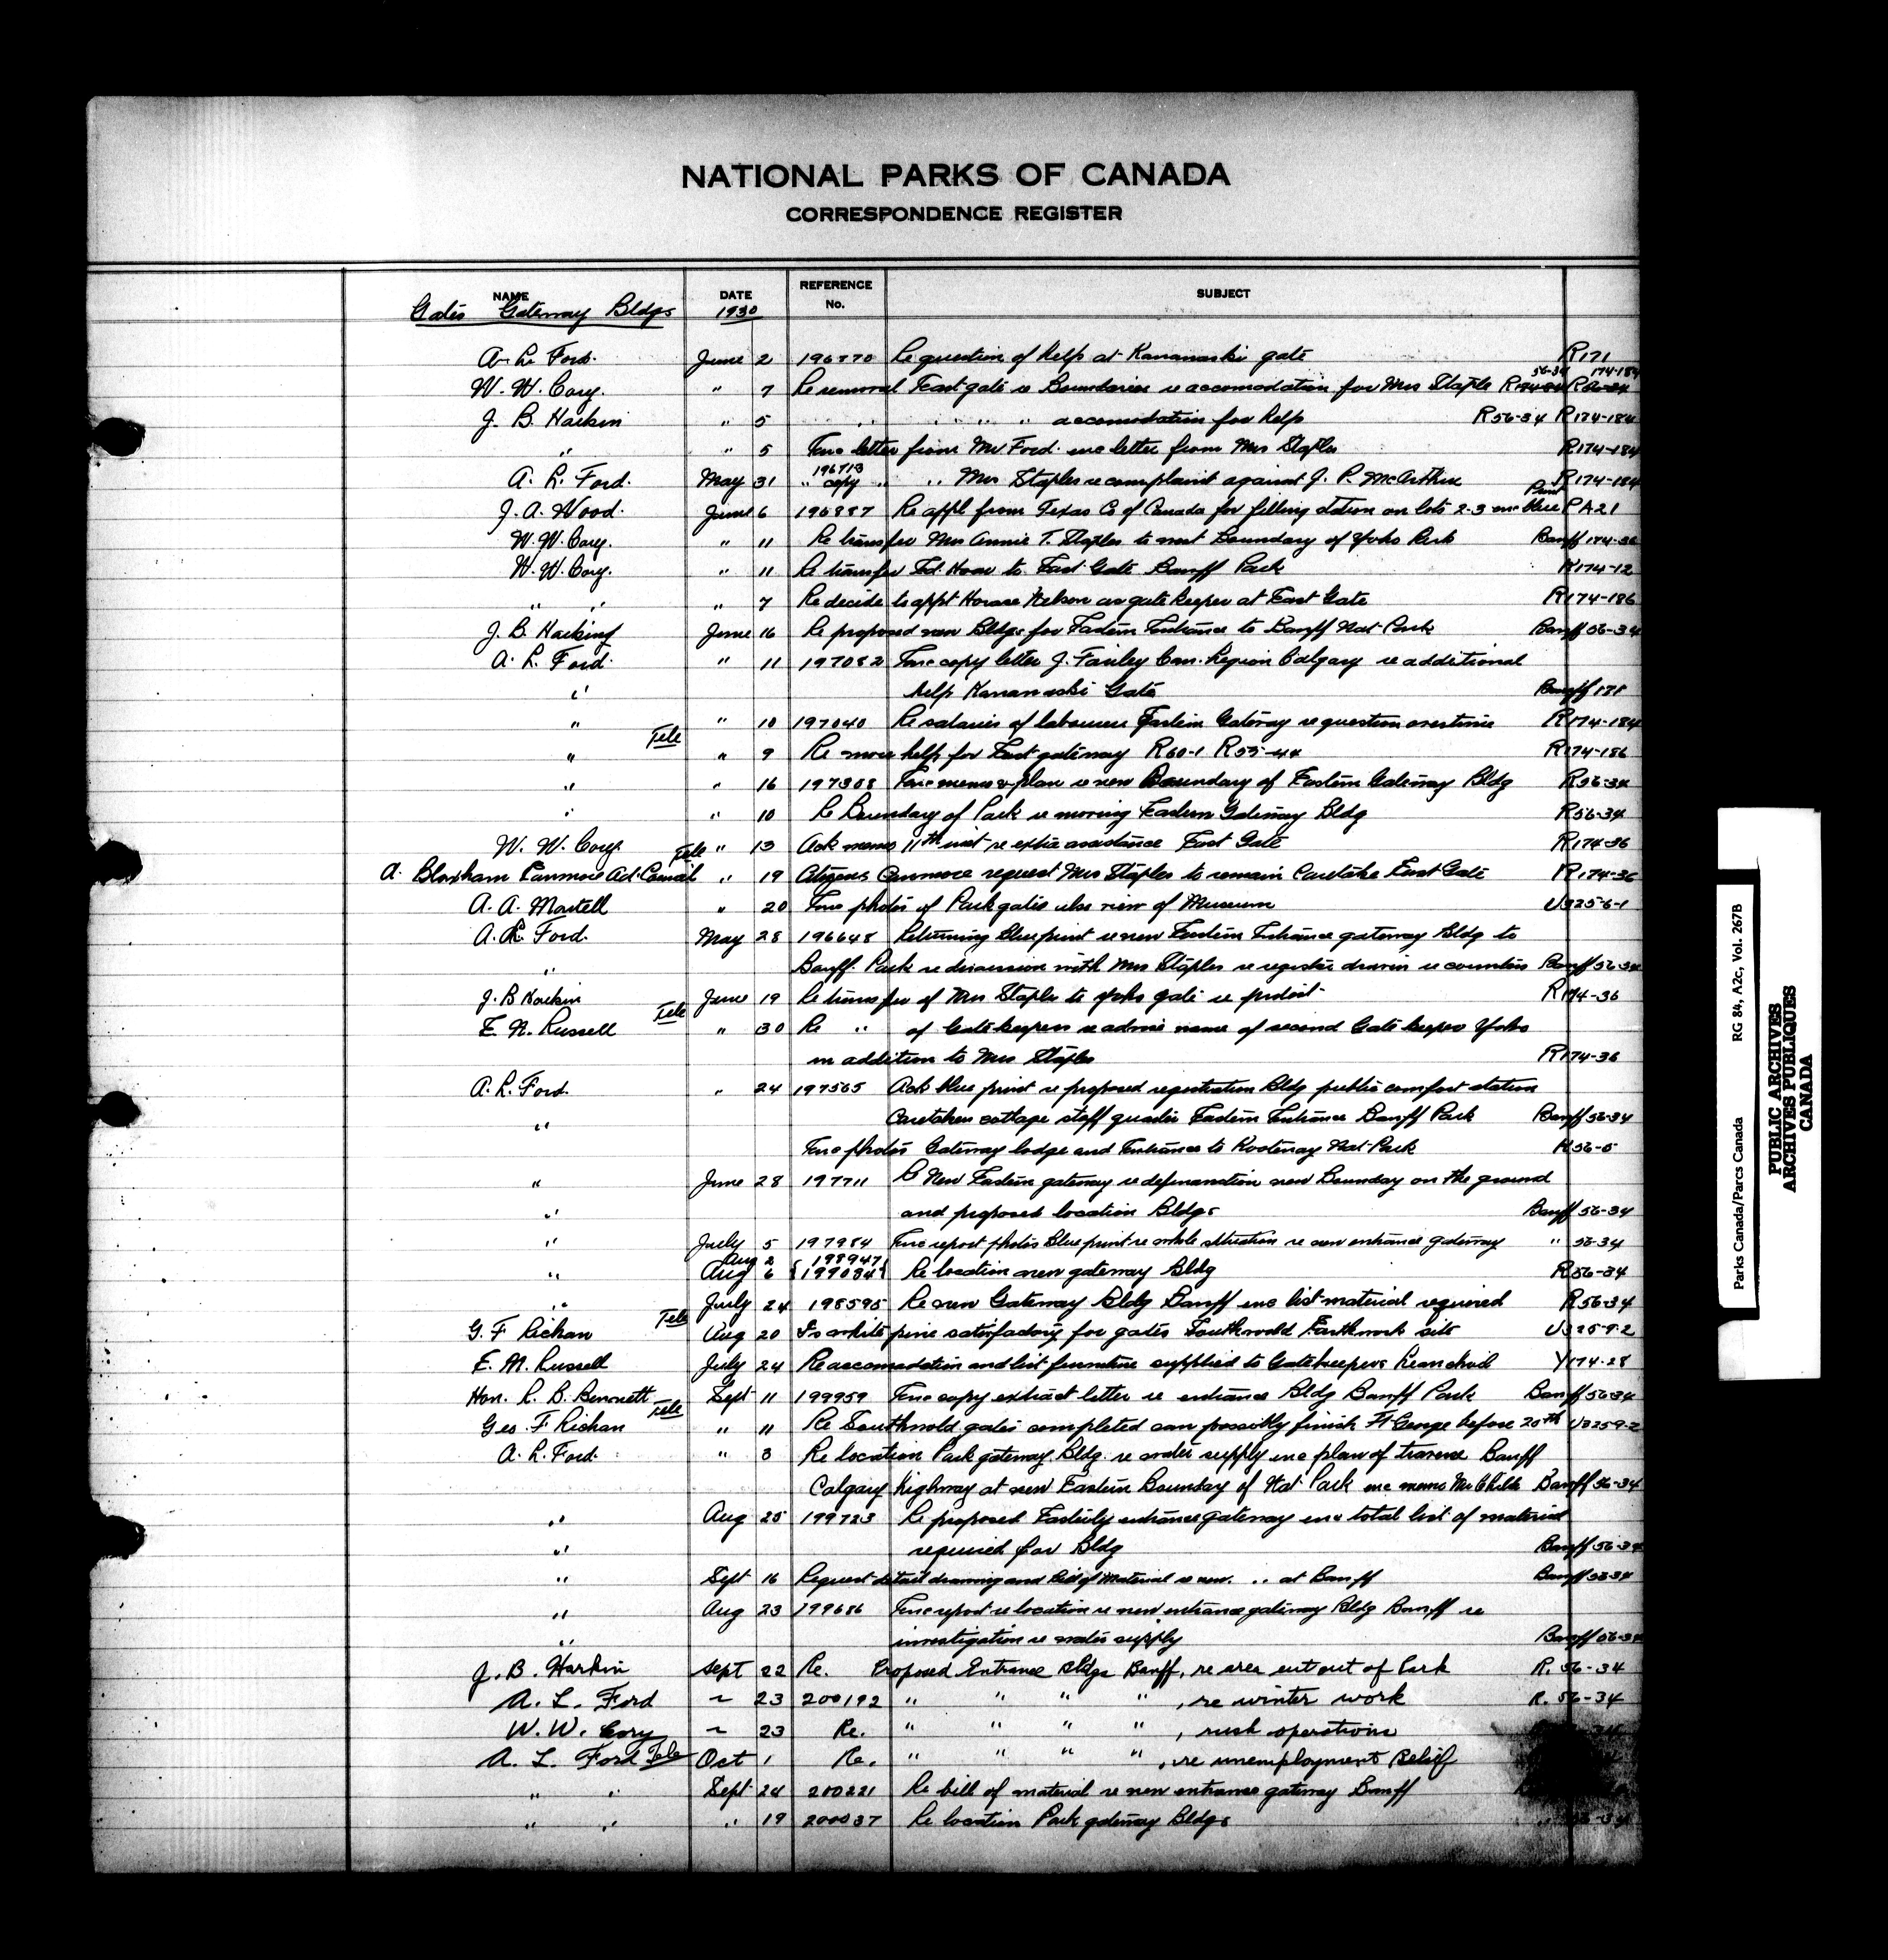 NATIONAL PARKS OF CANADA
CORRESPONDENCE REGISTER
NAME DATE REFERENCE No. SUBJECT
Gates Gateway Bldgs 1930
A. L. Ford. June 2 196870 Re question of help at Kananaski gate R171
W. W. Cory. " 7 Re removal East gate re Boundaries re accomodation for Mrs Staple 56-34 174-184
J. B. Harkin " 5 " " " accomodation for help R56-34 R174-184
" " 5 Enc letter from Mr Ford enc letter from Mrs Staples R174-184
A. L. Ford. May 31 196713 " copy " " Mrs Staples re complaint against J. P. McArthur R174-184
J. A. Wood. June 6 196887 Re appl from Texas Co of Canada for filling station on lots 2-3 enc blue Print PA21
W. W. Cory. " 11 Re transfer Mrs Annie T. Staples to west Boundary of Yoho Park Banff 174-36
W. W. Cory. " 11 Re transfer Ed. Hoar to East Gate Banff Park R174-12
" " " 7 Re decide to appt Horace Nelson as gate keeper at East Gate R174-186
J. B. Harking June 16 Re proposed new Bldgs for Eastern Entrance to Banff Nat Park Banff 56-34
A. L. Ford. " 11 197082 Enc copy letter J. Fairley Can. Legion Calgary re additional
" help Kananaski Gate Banff 171
" " 10 197040 Re salaries of labourers Eastern Gateway re question overtime R174-184
" Tele " 9 Re more help for East gateway R60-1 R55-44 R174-186
" " 16 197308 Enc memo & plan re new Boundary of Eastern Gateway Bldg R56-34
" " 10 Re Boundary of Park re moving Eastern Gateway Bldg R56-34
W. W. Cory. " 13 Ack memo 11th inst re extra assistance East Gate R174-36
A. Bloxham Canmore Ad. Council Tele " 19 Citizens Canmore request Mrs Staples to remain Caretaker East Gate R174-36
A. A. Martell " 20 Enc photos of Park gates also view of Museum U325-6-1
A. L. Ford. May 28 196648 Returning blue print re new Eastern Entrance gateway Bldg to
" Banff Park re discussion with Mrs Staples re register drawer re counters Banff 56-34
J. B Harkin June 19 Re transfer of Mrs Staples to Yoho gate re protest R174-36
E. N. Russell Tele " 30 Re " of Gatekeepers re advise name of second Gatekeeper Yoho
in addition to Mrs Staples R174-36
A. L. Ford. " 24 197565 Ack blue print re proposed registration Bldg public comfort station
" Caretakers cottage staff quarters Eastern Entrance Banff Park Banff 56-34
Enc photos Gateway lodge and Entrance to Kootenay Nat Park K56-5
" June 28 197711 Re New Eastern gateway re defination new Boundary on the ground
" and proposed location Bldgs Banff 56-34
" July 5 197984 Enc report photos Blue print re whole situation re new entrance gateway " 56-34
Aug 2 198947
" Aug 6 199084 Re location new gateway Bldg R56-34
" July 24 198595 Re new Gateway Bldg Banff enc list material required R56-34
G. F Richan Tele Aug 20 Is white pine satisfactory for gates Southwold Earthwork site U325-9-2
E. N. Russell July 24 Re accomodation and list furniture supplied to Gatekeepers Leanchoil Y174-28
Hon. R. B. Bennett Sept 11 199959 Enc copy extract letter re entrance Bldg Banff Park Banff 56-34
Geo. F Richan Tele " 11 Re Southwold gates completed can possibly finish Ft George before 20th U325-9-2
A. L. Ford. " 3 Re location Park gateway Bldg. re water supply enc plan of traverse Banff
Calgary highway at new Eastern Boundary of Nat Park enc memo Mr Childs Banff 56-34
" Aug 25 199723 Re proposed Easterly entrance gateway enc total list of material
" required for Bldg Banff 56-34
" Sept 16 Request detail drawing and bill of Material re new " at Banff Banff 56-34
" Aug 23 199686 Enc report re location re new entrance gateway Bldg Banff re
" investigation re water supply Banff 56-34
J. B. Harkin Sept 22 Re. Proposed Entrance Bldgs Banff, re area cut out of Park R. 56-34
A. L. Ford " 23 200192 " " " " , re winter work R. 56-34
W. W. Cory " 23 Re. " " " " , rush operations
A. L. Ford Tele Oct 1 Re. " " " " , re unemployment Relief
" " Sept 24 200221 Re bill of material re new entrance gateway Banff
" " " 19 200037 Re location Park gateway Bldgs 56-34
Parks Canada/Parcs Canada RG 84, A2c, Vol. 267B
PUBLIC ARCHIVES
ARCHIVES PUBLIQUES
CANADA